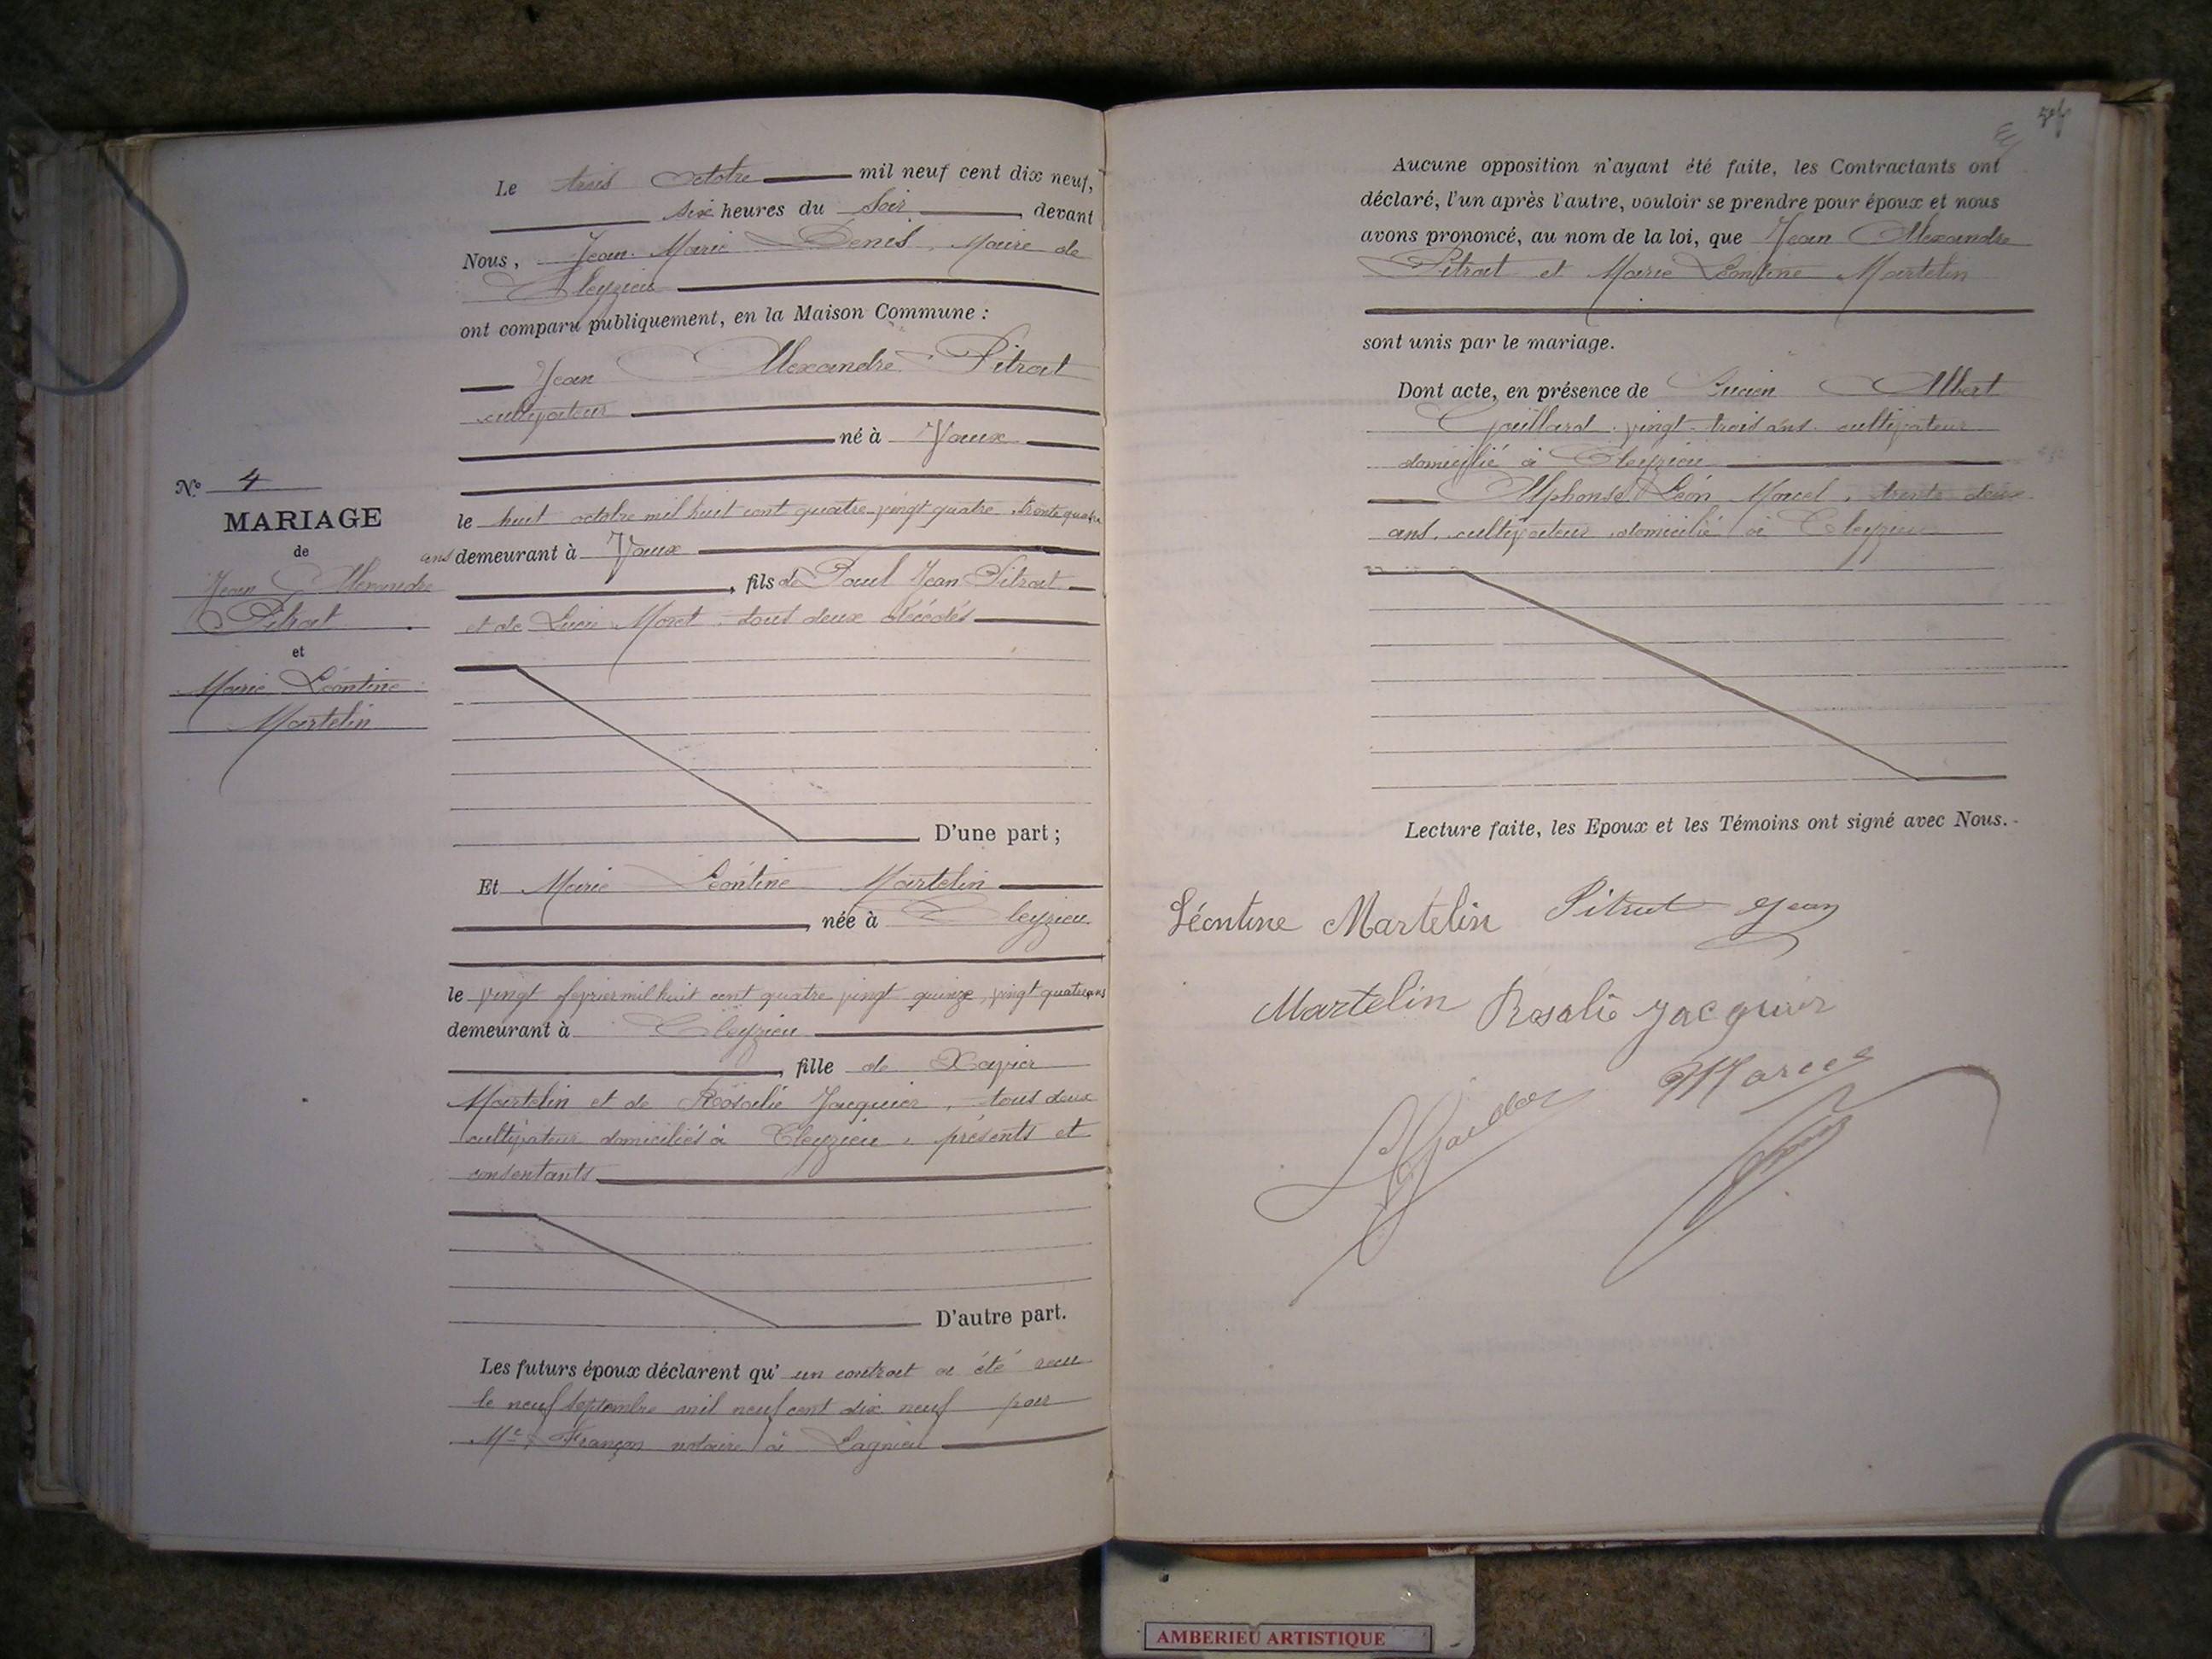 Le trois Octobre mil neuf cent dix neuf,
six heures du soir, devant
Nous, Jean Marie Denis, Maire de
Cleyzieu
ont comparu publiquement, en la Maison Commune :
Jean Alexandre Pitrat
cultivateur
né à Vaux
le huit octobre mil huit cent quatre-vingt quatre, trente quatre
ans demeurant à Vaux
, fils de Paul Jean Pitrat
et de Lucie Moret, tous deux décédés
D'une part ;
Nº 4
MARIAGE
de
Jean Alexandre
Pitrat
et
Marie Léontine
Martelin
Et Marie Léontine Martelin
, née à Cleyzieu
le vingt fevrier mil huit cent quatre vingt quinze, vingt quatre ans
demeurant à Cleyzieu
, fille de Xavier
Martelin et de Rosalie Jacquier, tous deux
cultivateurs domiciliés à Cleyzieu, présents et
consentants
D'autre part.
Les futurs époux déclarent qu' un contrat a été recu
le neuf Septembre mil neuf cent dix neuf par
Me François notaire à Lagnieu
Aucune opposition n'ayant été faite, les Contractants ont
déclaré, l'un après l'autre, vouloir se prendre pour époux et nous
avons prononcé, au nom de la loi, que Jean Alexandre
Pitrat et Marie Léontine Martelin
sont unis par le mariage.
Dont acte, en présence de Lucien Albert
Gaillard, vingt-trois ans, cultivateur
domicilié à Cleyzieu
Alphonse Léon Marcel, trente deux
ans, cultivateur domicilié à Cleyzieu
Lecture faite, les Epoux et les Témoins ont signé avec Nous.
Léontine Martelin Pitrat Jean
Martelin Rosalie Jacquier
L Gaillard Marcel
AMBERIEU ARTISTIQUE